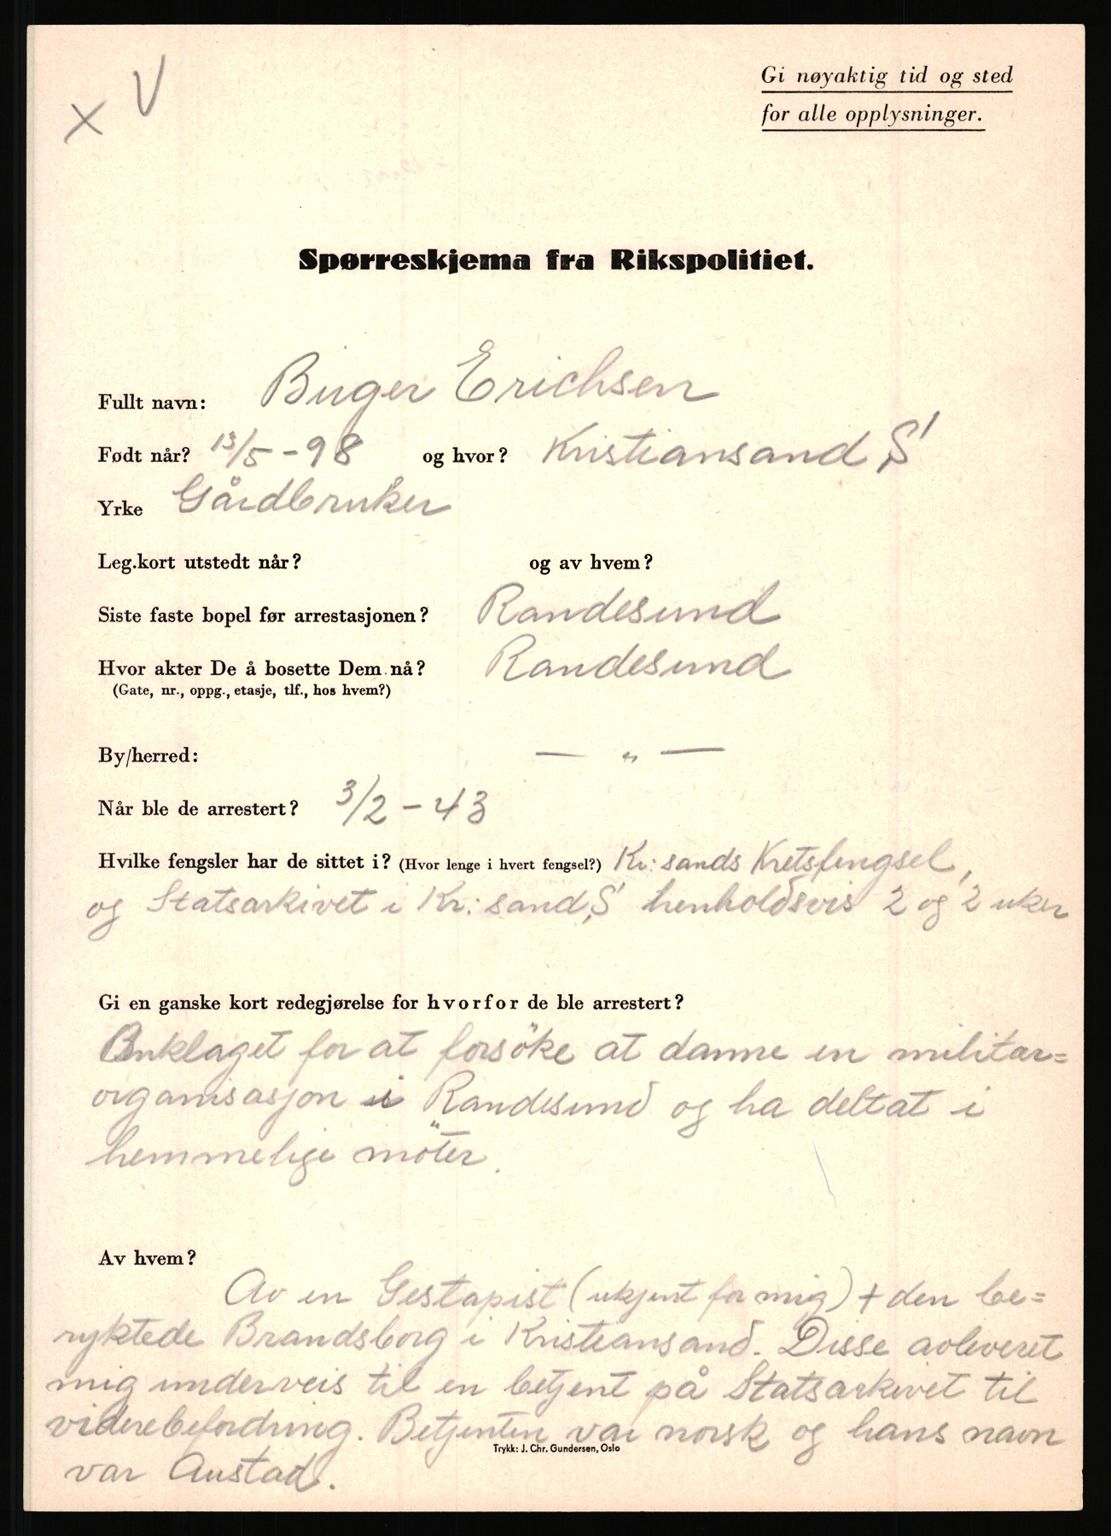 x V
Gi nøyaktig tid og sted
for alle opplysninger.
Spørreskjema fra Rikspolitiet.
Fullt navn: Birger Erichsen
Født når? 13/5 - 98 og hvor? Kristiansand S'
Yrke Gårdbruker
Leg.kort utstedt når? og av hvem?
Siste faste bopel før arrestasjonen? Randesund
Hvor akter De å bosette Dem nå? Randesund
(Gate, nr., oppg., etasje, tlf., hos hvem?)
By/herred: — „ —
Når ble de arrestert? 3/2 - 43
Hvilke fengsler har de sittet i? (Hvor lenge i hvert fengsel?) Kr:sands Kretsfengsel,
og Statsarkivet i Kr:sand,S' henholdsvis 2 og 2 uker
Gi en ganske kort redegjørelse for hvorfor de ble arrestert?
Anklaget for at forsöke at danne en militær=
organisasjon i Randesund og ha deltat i
hemmelige möter.
Av hvem?
Av en Gestapist (ukjent for mig) + den be=
ryktede Brandsborg i Kristiansand. Disse avleveret
mig underveis til en betjent på Statsarkivet til
viderebefordring. Betjenten var norsk og hans navn
Trykk: J. Chr. Gundersen, Oslo
var Austad.